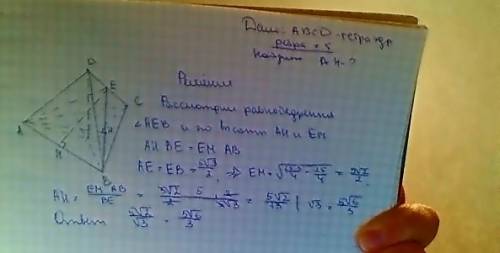 Дано: ABCD - тетраэдр
ребра = 5
Найти AH - ?
Решения
D
E
C
A
M
H
B
Рассмотрим равнобедренн
∠AEB и по высоты AH и EM
AH BE = EM AB
AE = EB = 5√3/2, ⇒ EM = √(75/4 - 25/4) = 5√2/2
AH = EM AB/BE = 5√2/2 · 5 · 2/5√3 = 5√2/√3 | √3 = 5√6/3
Ответ 5√2/√3 = 5√6/3